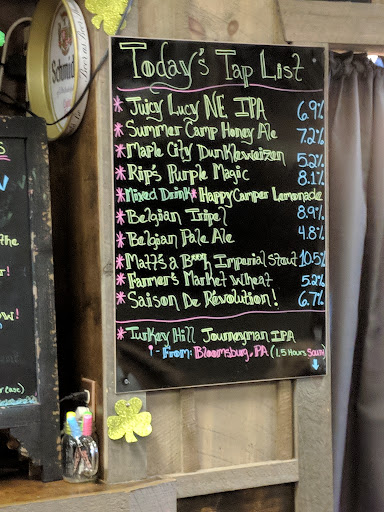 Schmid
Today's Tap List
* Juicy Lucy NE IPA 6.9%
* Summer Camp Honey Ale 7.2%
* Maple City Dunkelweizen 5.2%
* Ripp's Purple Magic 8.1%
* Mixed Drink * Happy Camper Lemonade
* Belgian Tripel 8.9%
* Belgian Pale Ale 4.8%
* Matt's a B***h Imperial Stout 10.5%
* Farmer's Market Wheat 5.2%
* Saison De Révolution! 6.7%
* Turkey Hill Journeyman IPA
- From: Bloomsburg, PA (1.5 Hours South)
the